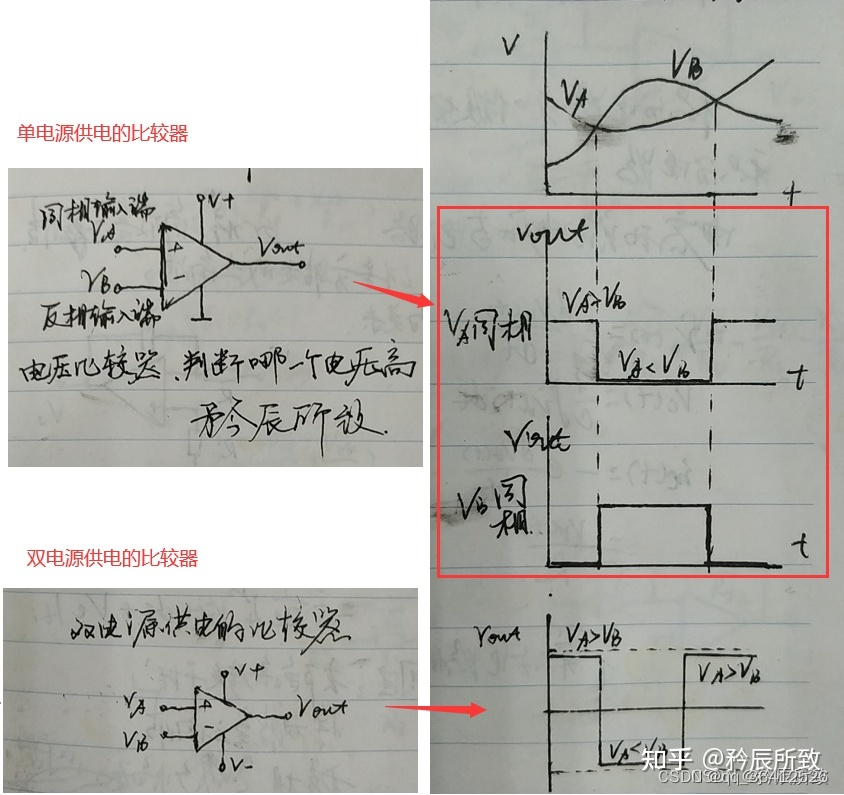 单电源供电的比较器
同相输入端
V+
VA
+
Vout
VB
-
反相输入端
电压比较器,判断哪一个电压高
矜辰所致.
双电源供电的比较器
双电源供电的比较器
V+
VA
+
Vout
VB
-
V-
V
VA
VB
t
Vout
VA>VB
VA同相
VA<VB
t
Vout
VB同相.
t
Vout
VA>VB
VA>VB
VA<VB
知乎 @矜辰所致